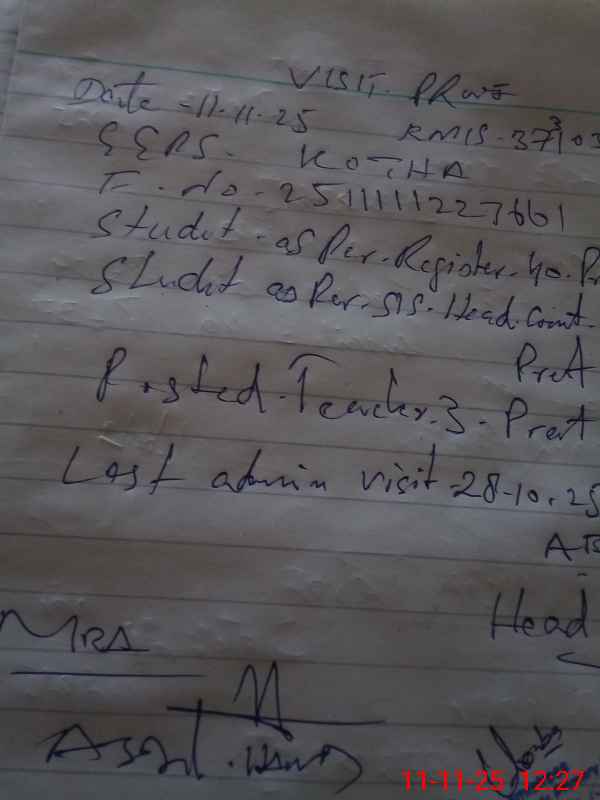 VISIT. PROof
Date -11-11-25
EMIS-37103
GGPS. KOTHA
F. No. 251111227661
Studet. as Per. Register. 40. Pr
Studet as Per. SIS. Head. Count.
Pret
Posted. Teacher. 3. Pret
Last admin visit -28-10-25
AB
Head
MEA
Asst.
11-11-25 12:27